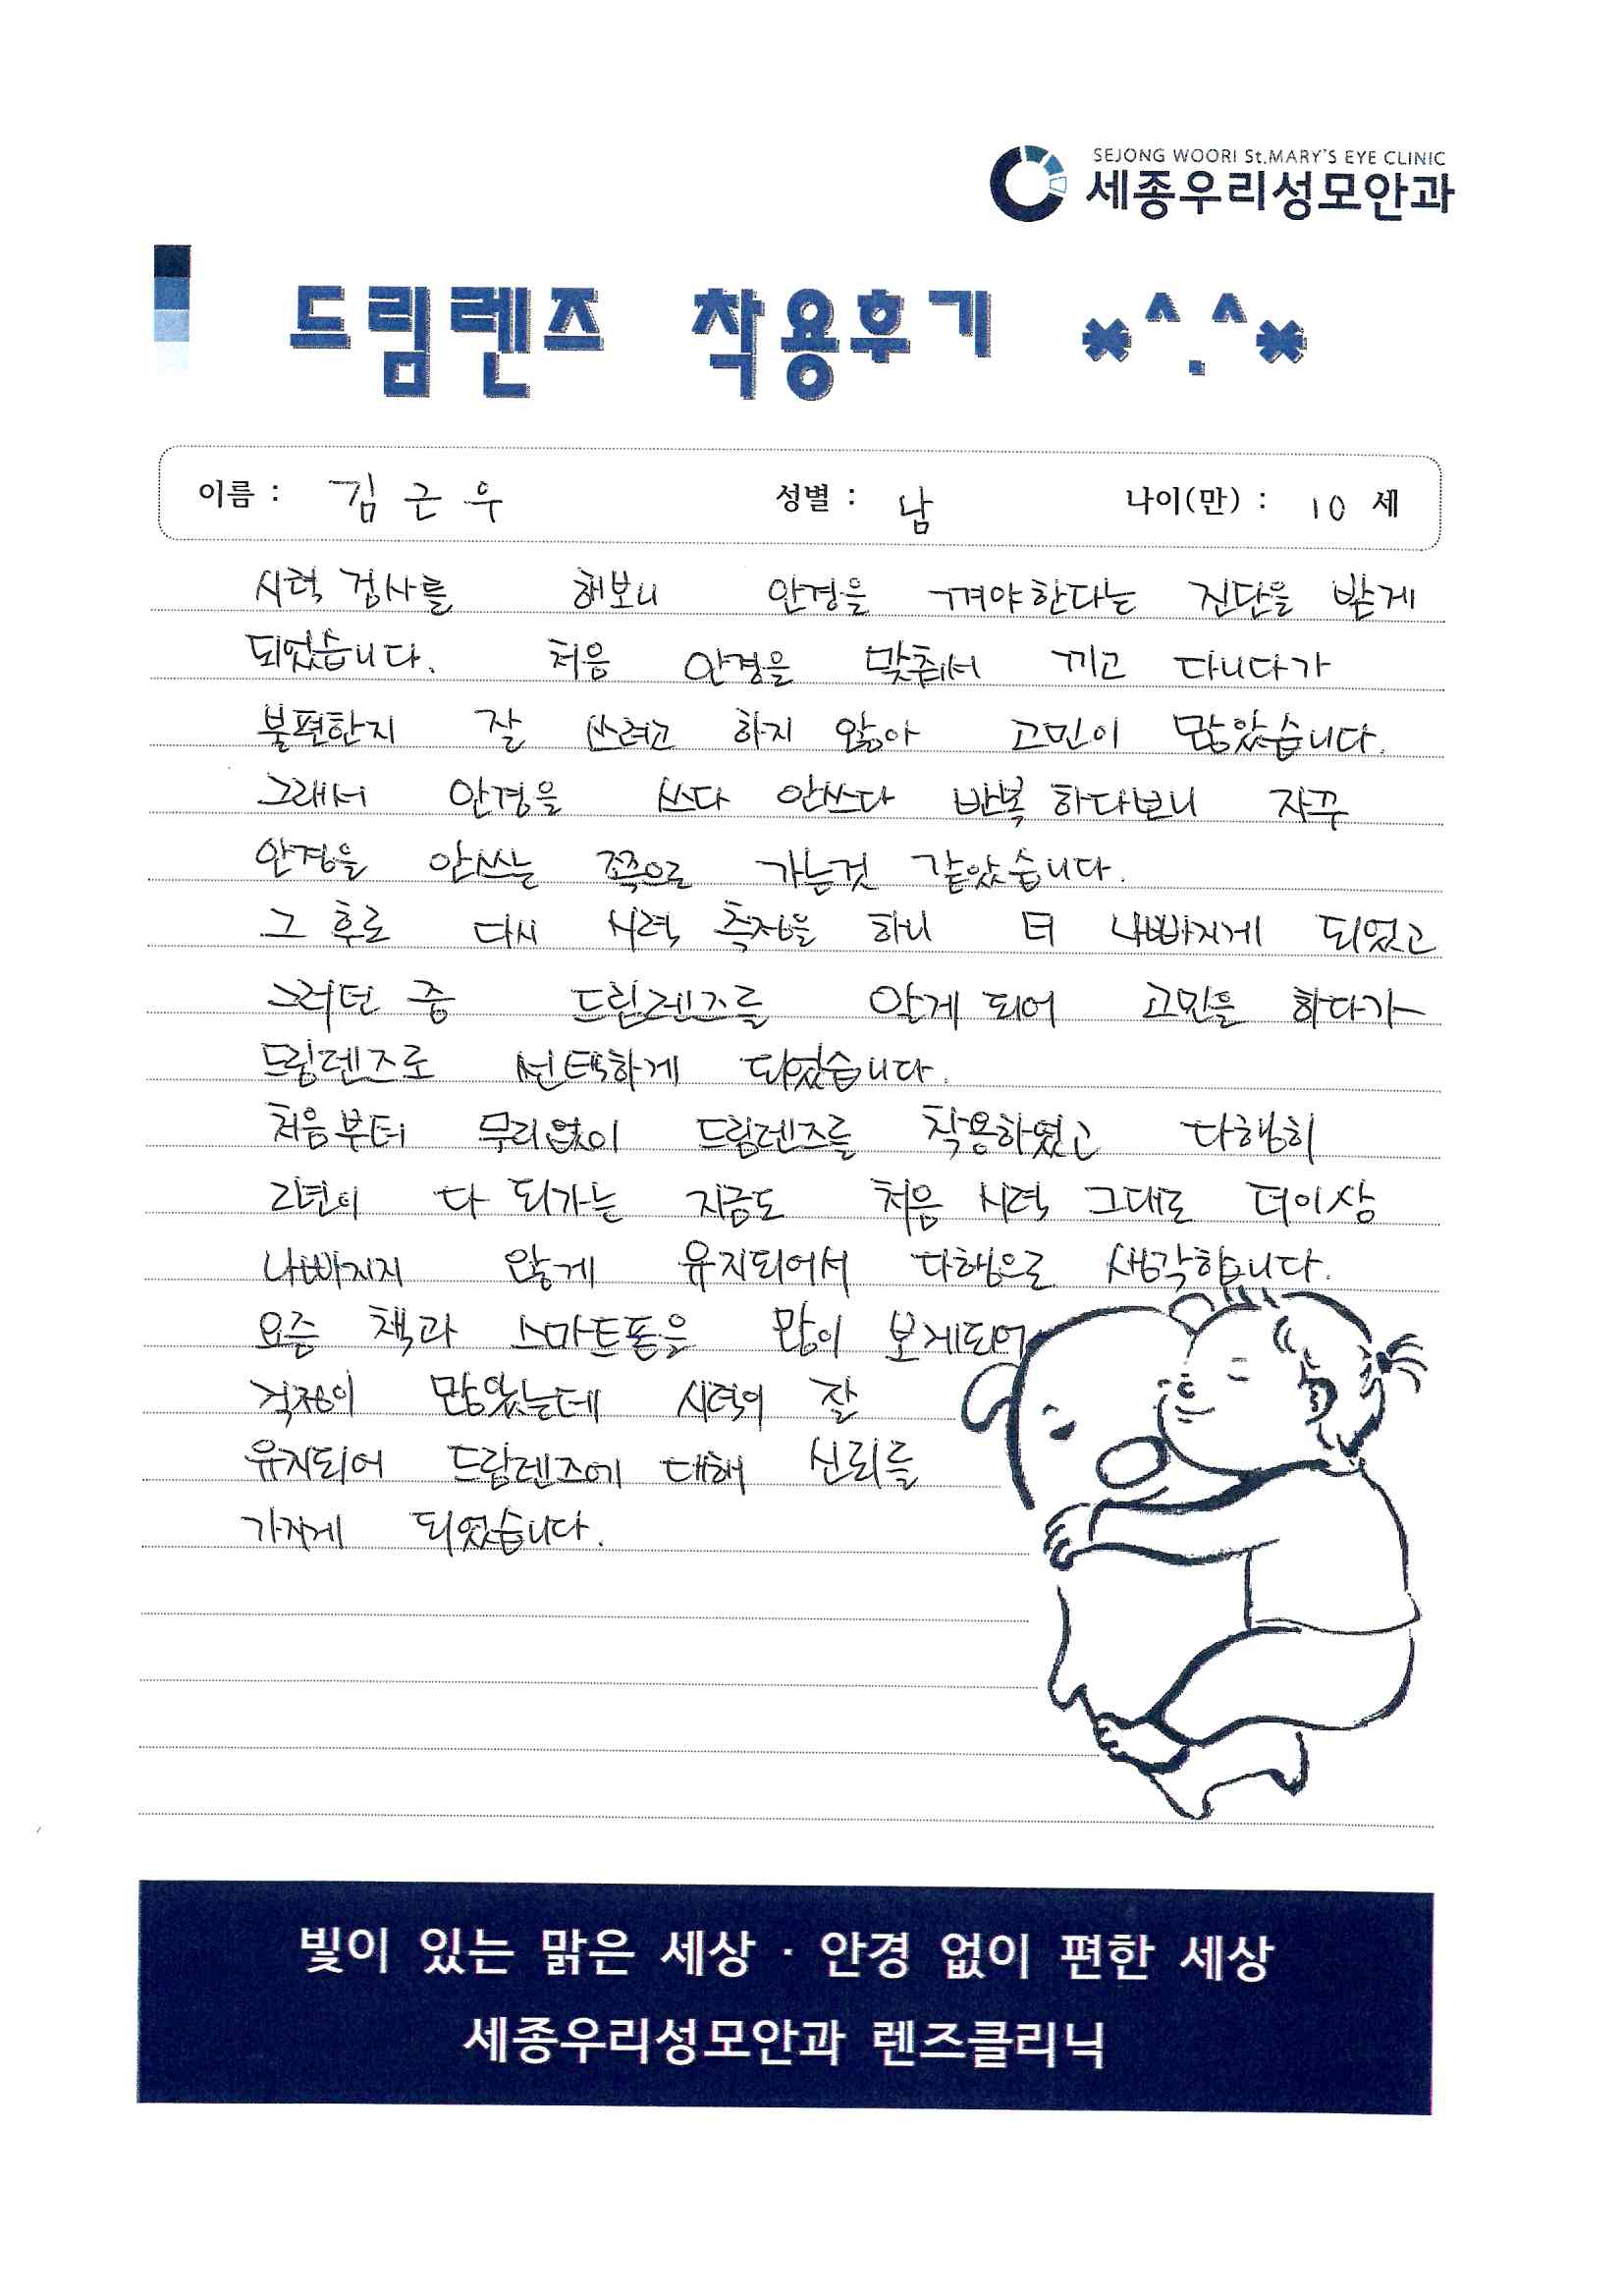 SEJONG WOORI St.MARY'S EYE CLINIC
세종우리성모안과
드림렌즈 착용후기 *^.^*
이름 : 김근우 성별 : 남 나이(만) : 10 세
시력 검사를 해보니 안경을 껴야한다는 진단을 받게
되었습니다. 처음 안경을 맞춰서 끼고 다니다가
불편한지 잘 쓰려고 하지 않아 고민이 많았습니다.
그래서 안경을 쓰다 안쓰다 반복 하다보니 자꾸
안경을 안쓰는 쪽으로 가는것 같았습니다.
그 후로 다시 시력 측정을 하니 더 나빠지게 되었고
그러던 중 드림렌즈를 알게 되어 고민을 하다가
드림렌즈로 선택하게 되었습니다.
처음부터 무리없이 드림렌즈를 착용하였고 다행히
2년이 다 되가는 지금도 처음 시력 그대로 더이상
나빠지지 않게 유지되어서 다행으로 생각합니다.
요즘 책과 스마트폰을 많이 보게되어
걱정이 많았는데 시력이 잘
유지되어 드림렌즈에 대해 신뢰를
가지게 되었습니다.
빛이 있는 맑은 세상 · 안경 없이 편한 세상
세종우리성모안과 렌즈클리닉